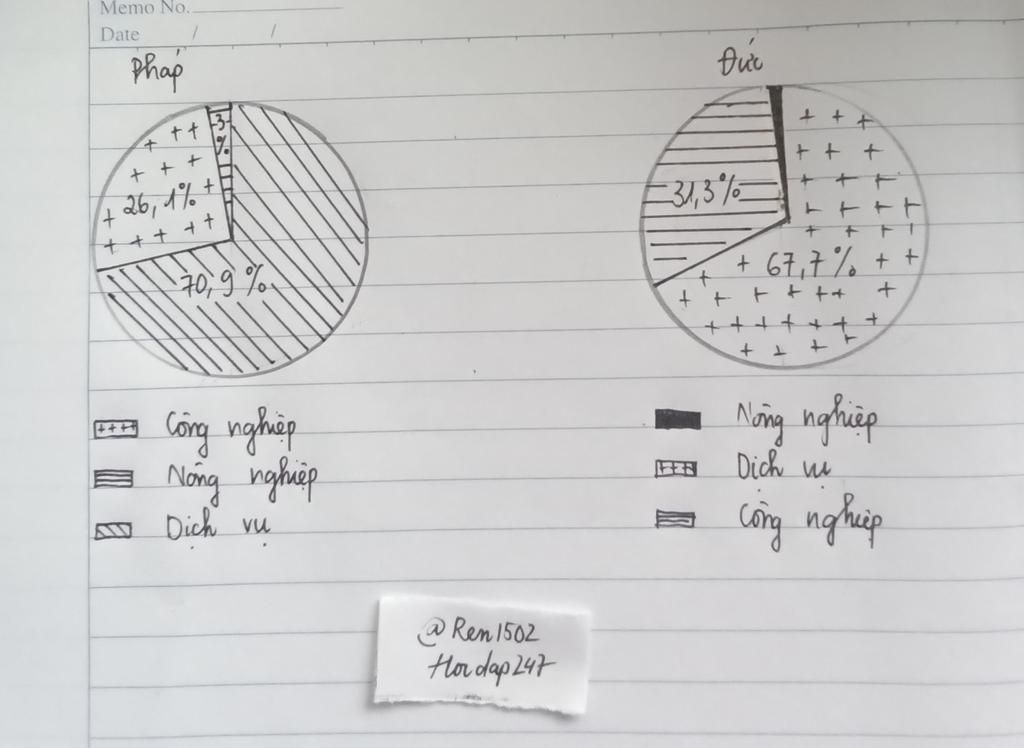 Memo No.
Date / /
Pháp
Đức
3
%
26,1%
70,9%
31,3%
67,7%
Công nghiệp
Nông nghiệp
Dịch vụ
Nông nghiệp
Dịch vụ
Công nghiệp
@Ren1502
Hoidap247